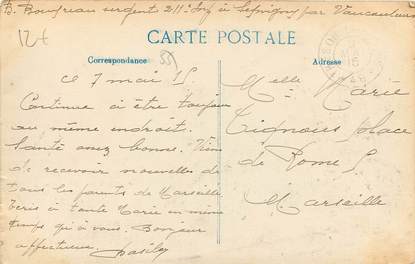 B. Bonfreau sergent 211e Inf à Sepvigny par Vaucouleurs
12t
CARTE POSTALE
Correspondance
55
Adresse
15
ce 7 mai 15
Continue à être toujours
au même endroit.
Santé assez bonne. Viens
de recevoir nouvelles de
tous les parents de Marseille
Ecris à tante Marie en même
temps qu'à vous. Bonjour
affectueux
Melle Marie
place
de Rome 5
Marseille